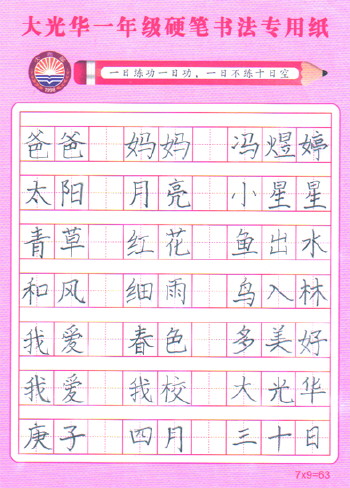 大光华一年级硬笔书法专用纸
一日练功一日功，一日不练十日空
爸爸 妈妈 冯煜婷
太阳 月亮 小星星
青草 红花 鱼出水
和风 细雨 鸟入林
我爱 春色 多美好
我爱 我校 大光华
庚子 四月 三十日
7x9=63